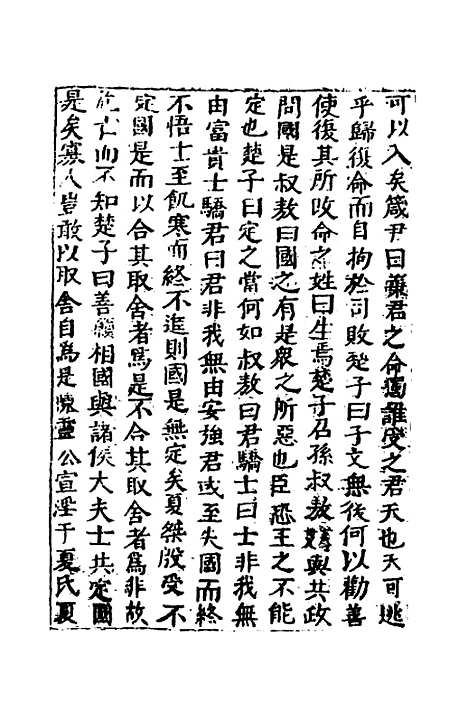 可以入矣箴尹曰棄君之命獨誰受之君天也天可逃
乎歸復命而自拘於司敗楚子曰子文無後何以勸善
使復其所改命之姓曰生焉楚子召孫叔敖與共政
問國是叔敖曰國之有是衆之所惡也臣恐王之不能
定也楚子曰定之當何如叔敖曰君驕士曰士非我無
由富貴士驕君曰君非我無由安強君或至失國而終
不悟士至飢寒而終不進則國是無定矣夏桀殷受不
定國是而以合其取舍者為是不合其取舍者爲非故
亡而不知楚子曰善願相國與諸侯大夫士共定國
是矣寡人豈敢以取舍自爲是陳靈公宣淫于夏氏夏